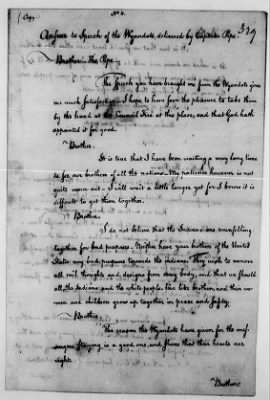 Copy
No. 4.
329
Answer to Speech of the Wyandots, delivered by Captain Pipe.
Brother the Pipe,
The Speech you brought me from the Wyandots gives
me much Satisfaction. I hope to have soon the pleasure to take them
by the hand at the Council Fire at this place, and that God hath
appointed it for good.
Brother.
It is true that I have been waiting a very long time
to for our brothers of all the nations. My patience however is not
quite worn out. I will wait a little longer yet for I know it is
difficult to get them together.
Brother.
I do not believe that the Indians are assembling
together for bad purposes. Neither have your brothers of the United
States any bad purposes towards the indians. They wish to remove
all evil thoughts and designs from every body, and that we should
all, the Indians and the white people live like brothers, and their wo-
men and children grow up together in peace and safety.
Brother.
The reason the Wyandots have given for the mes-
sengers staying is a good one, and shews that their hearts are
right.
Brother